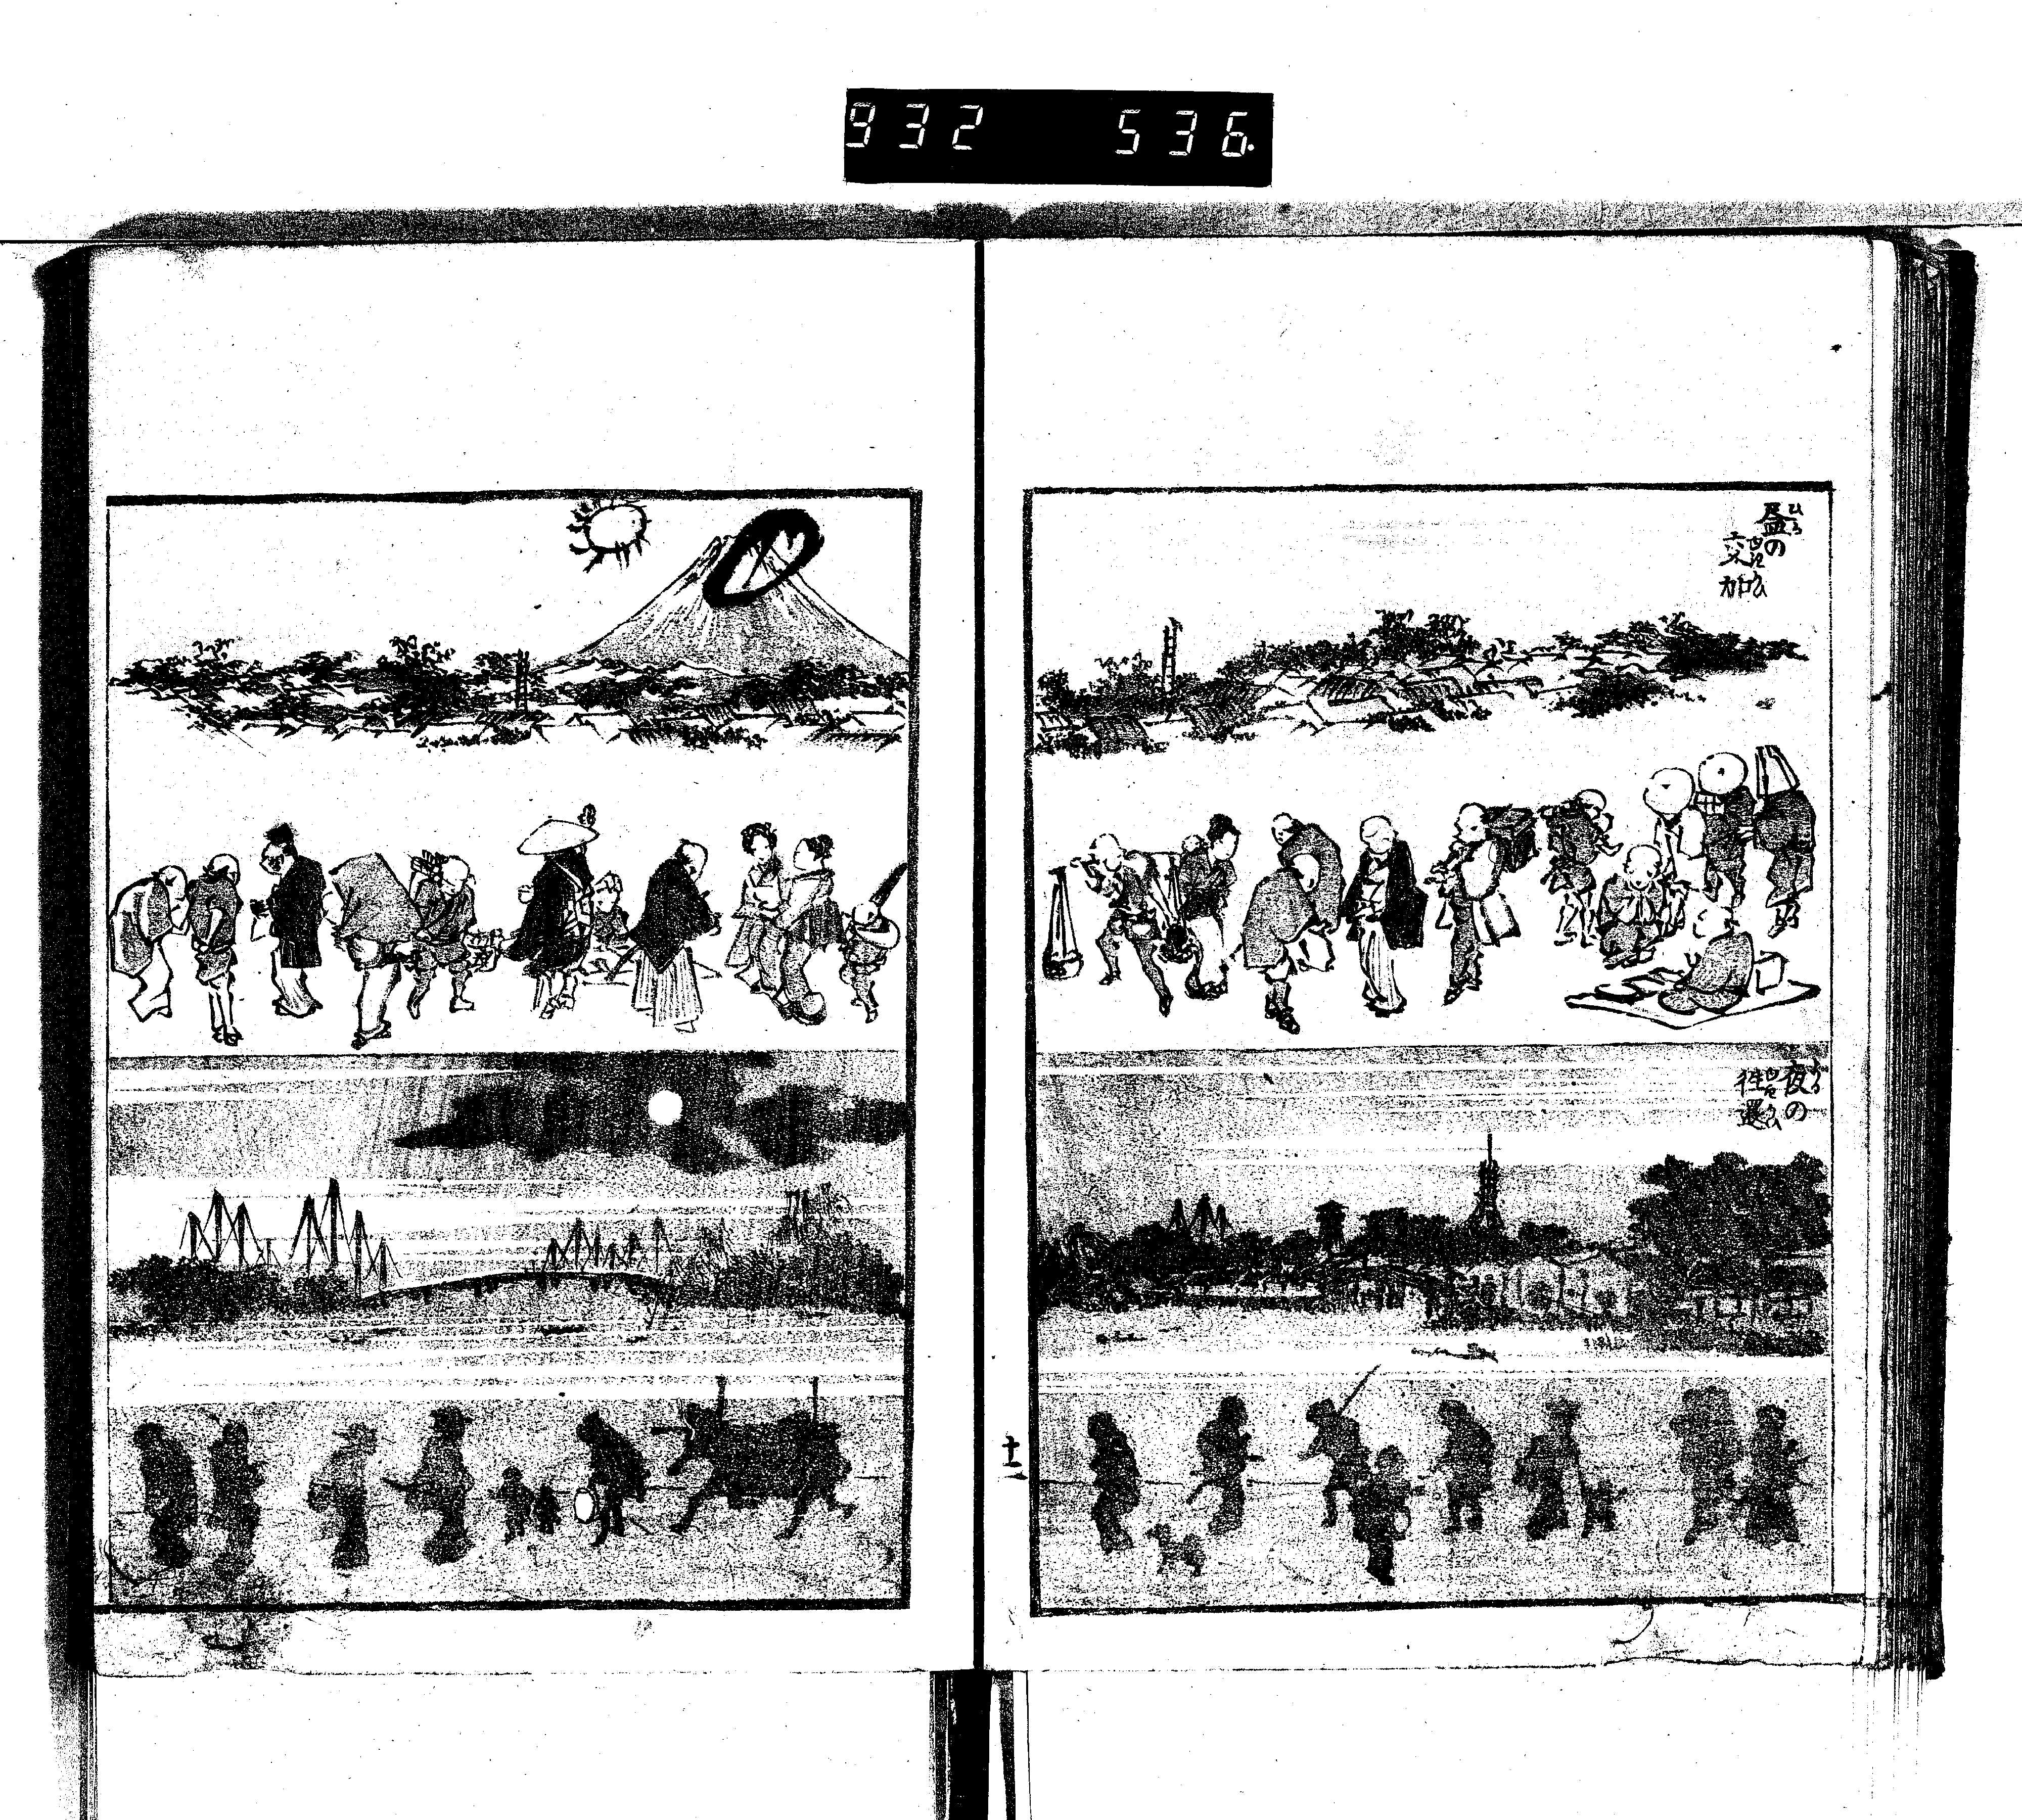 932 536.
昼の
交加
夜の
往還
十一